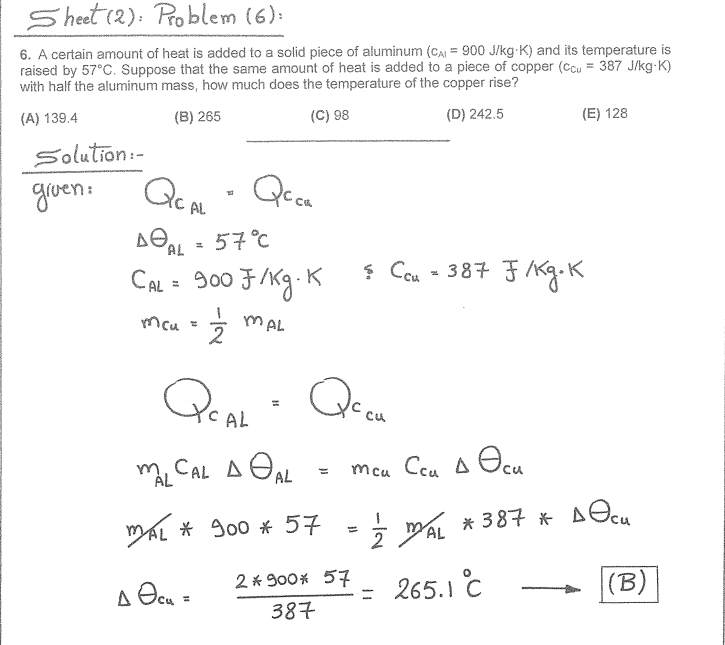 Sheet (2): Problem (6):
6. A certain amount of heat is added to a solid piece of aluminum (cAl = 900 J/kg·K) and its temperature is
raised by 57°C. Suppose that the same amount of heat is added to a piece of copper (cCu = 387 J/kg·K)
with half the aluminum mass, how much does the temperature of the copper rise?
(A) 139.4 (B) 265 (C) 98 (D) 242.5 (E) 128
Solution:-
given: Qc AL = Qc cu
ΔθAL = 57°C
CAL = 900 J/Kg.K ; Ccu = 387 J/Kg.K
mcu = 1/2 mAL
Qc AL = Qc cu
mAL CAL Δ θAL = mcu Ccu Δ θcu
mAL * 900 * 57 = 1/2 mAL * 387 * Δθcu
Δ θcu = 2*900* 57 / 387 = 265.1 °C → (B)